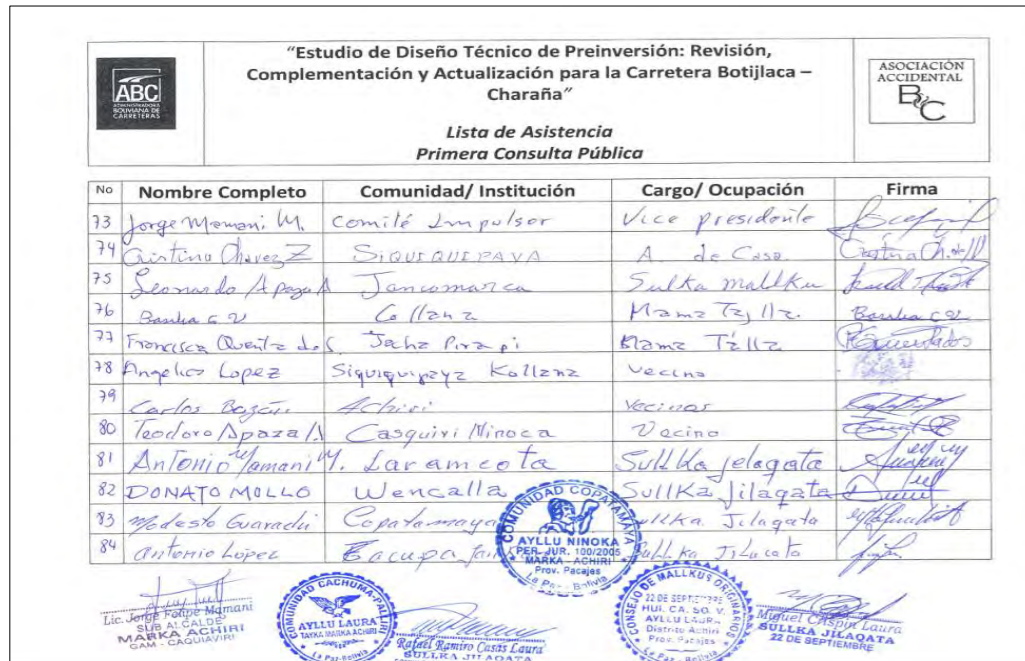 "Estudio de Diseño Técnico de Preinversión: Revisión,
Complementación y Actualización para la Carretera Botijlaca –
Charaña"
ABC
ADMINISTRADORA
BOLIVIANA DE
CARRETERAS
ASOCIACIÓN
ACCIDENTAL
ByC
Lista de Asistencia
Primera Consulta Pública
No Nombre Completo Comunidad/ Institución Cargo/ Ocupación Firma
73 Jorge Mamani M. Comité Impulsor Vice presidente
74 Cristina Chavez Z SIQUIQUIPAYA A. de Casa
75 Leonardo Apaza A Jancomarca Sulka Mallku
76 Basilia C. V Collana Mama Talla
77 Francisca Quenta de S. Jacha Pirapi Mama Talla
78 Angelica Lopez Siquiquipaya Kollana Vecina
79 Carlos Bazán Achiri Vecinos
80 Teodoro Apaza A Casquiri Ninoca Vecino
81 Antonio Mamani M. Laramcota Sullka jelaqata
82 DONATO MOLLO Wencalla Sullka Jilaqata
83 Modesto Guarachi Copatamaya Sullka Jilaqata
84 Antonio Lopez Sullka Jilacato
COMUNIDAD COPATAMAYA
AYLLU NINOKA
PER. JUR. 100/2005
MARKA - ACHIRI
Prov. Pacajes
La Paz - Bolivia
Lic. Jorge Felipe Mamani
SUB ALCALDE
MARKA ACHIRI
GAM - CAQUIAVIRI
COMUNIDAD CACHUMA-PALLIRI
AYLLU LAURA
TAYKA MARKA ACHIRI
La Paz-Bolivia
Rafael Ramiro Casas Laura
SULLKA JILAQATA
CONSEJO DE MALLKUS ORIGINARIOS
22 DE SEPTIEMBRE
AYLLU LAURA
Distrito Achiri
Prov. Pacajes
La Paz - Bolivia
Miguel Crispin Laura
SULLKA JILAQATA
22 DE SEPTIEMBRE